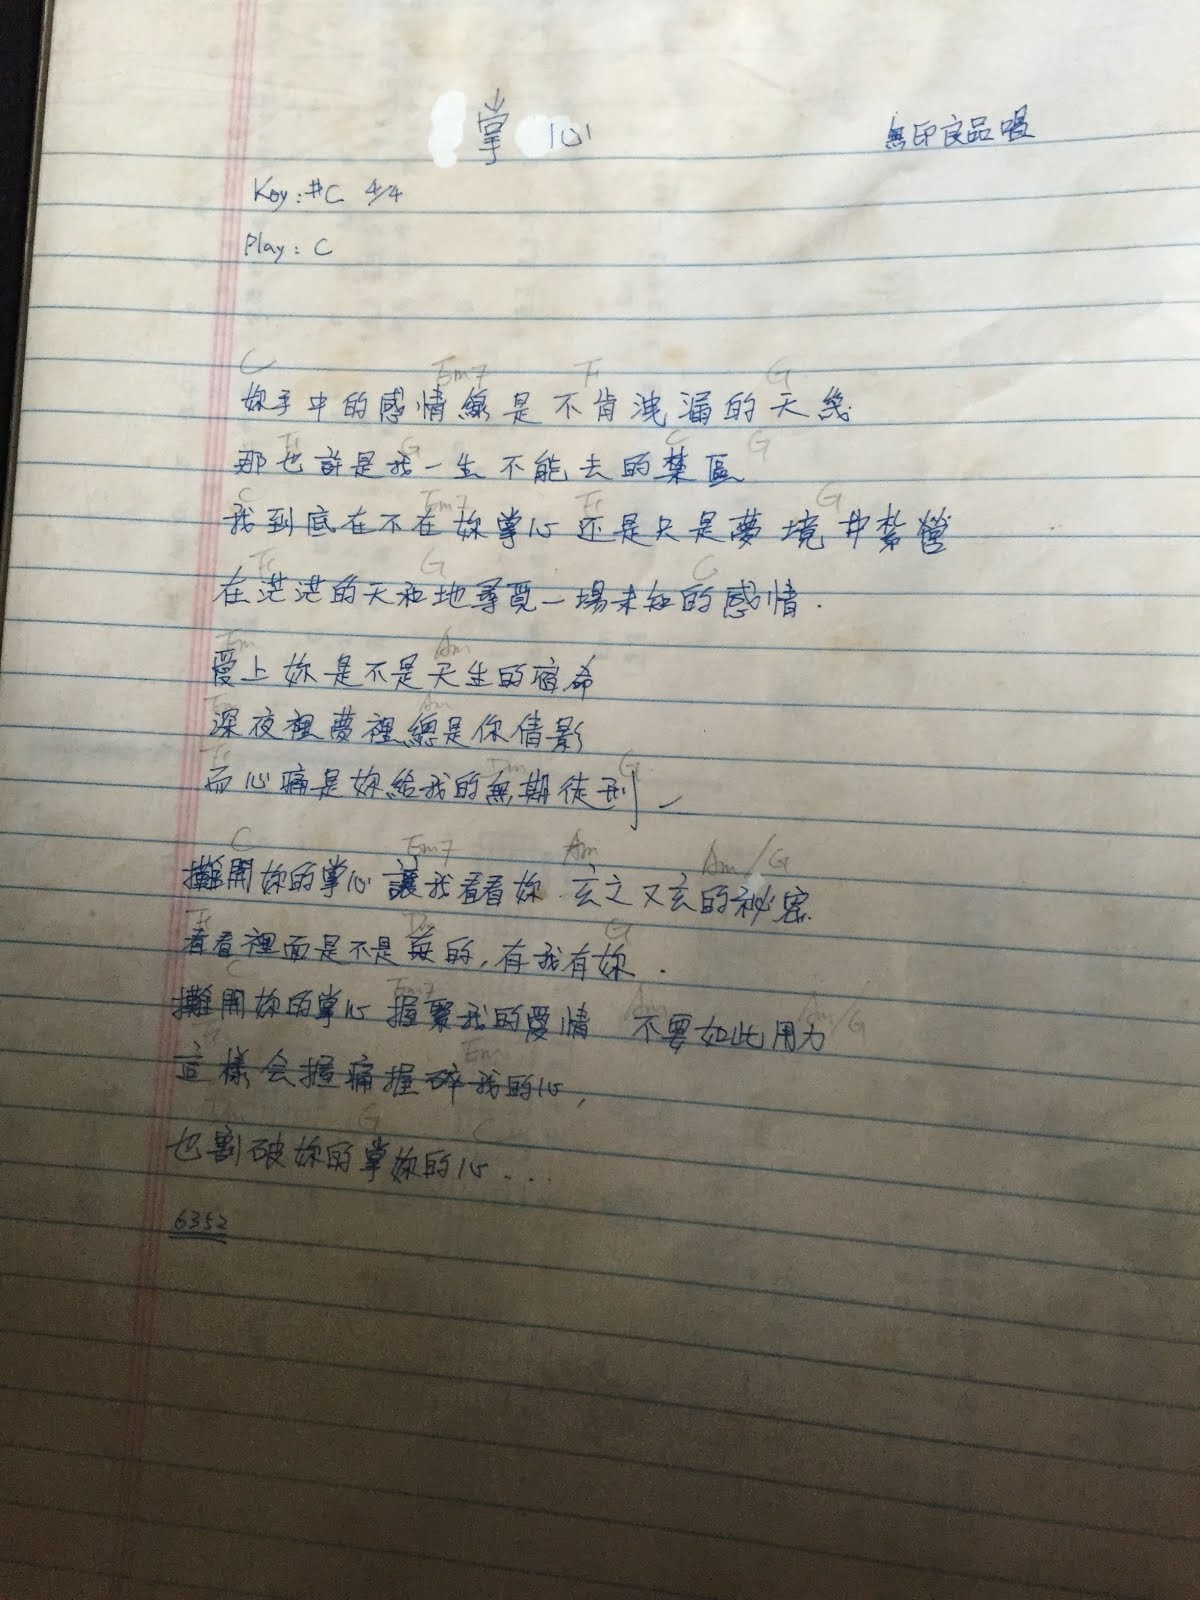 掌心 無印良品唱
Key: #C 4/4
Play: C
C Em7 F G
妳手中的感情線是不肯洩漏的天幾
F G C G
那也許是我一生不能去的禁區
C Em7 F G
我到底在不在妳掌心 还是只是夢境中紮營
F G C
在茫茫的天和地尋覓一場未知的感情.
Em Am
愛上妳是不是天生的宿命
Em Am
深夜裡夢裡總是你倩影
F Dm G
而心痛是妳給我的無期徒刑
C Em7 Am Am/G
攤開妳的掌心 讓我看看妳 玄之又玄的祕密.
F G
看看裡面是不是真的,有我有妳.
C Em7 Am Am/G
攤開妳的掌心 握緊我的愛情 不要如此用力
F Em
這樣会握痛握碎我的心,
Dm G C
也割破妳的掌妳的心...
6352